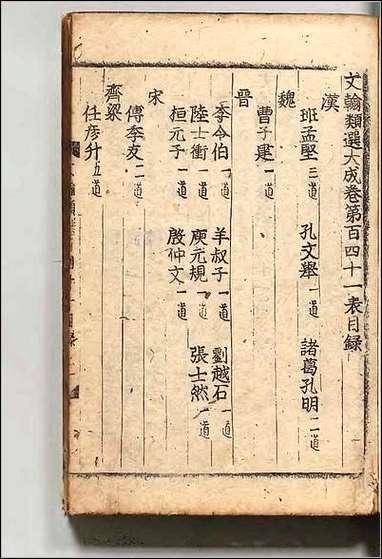 文翰類選大成卷第百四十一表目録
漢
班孟堅三道 孔文舉一道 諸葛孔明二道
魏
曹子建一道
晉
李令伯一道 羊叔子一道 劉越石一道
陸士衡一道 庾元規一道 張士然一道
桓元子一道 殷仲文一道
宋
傅季友二道
齊梁
任彦升五道